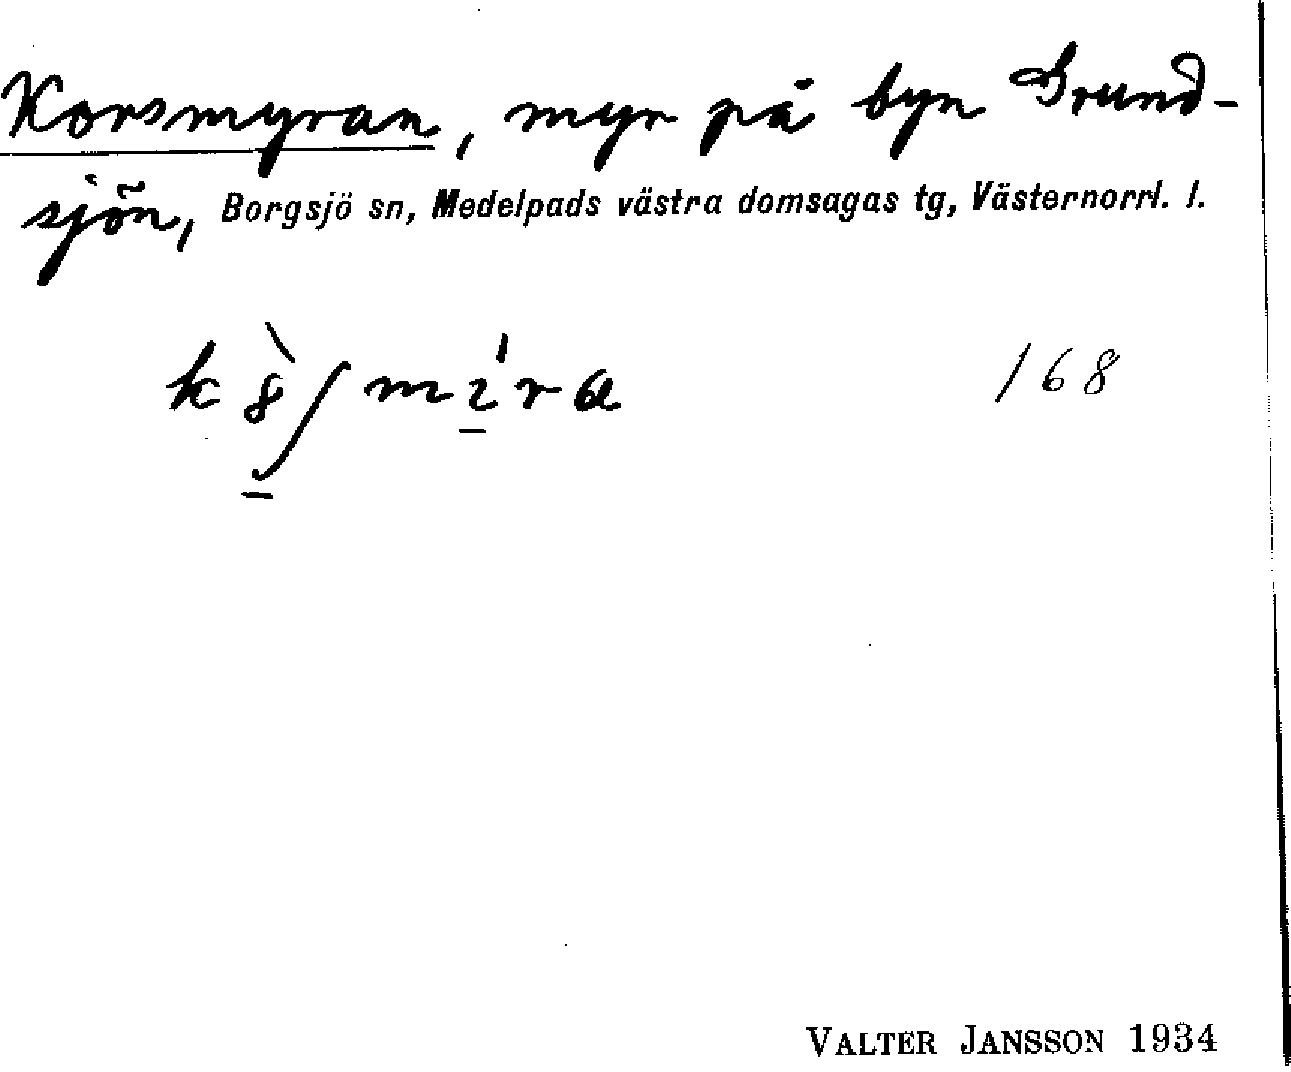 Korsmyran, myr på byn Grund-
sjön, Borgsjö sn, Medelpads västra domsagas tg, Västernorrl. l.
168
VALTER JANSSON 1934